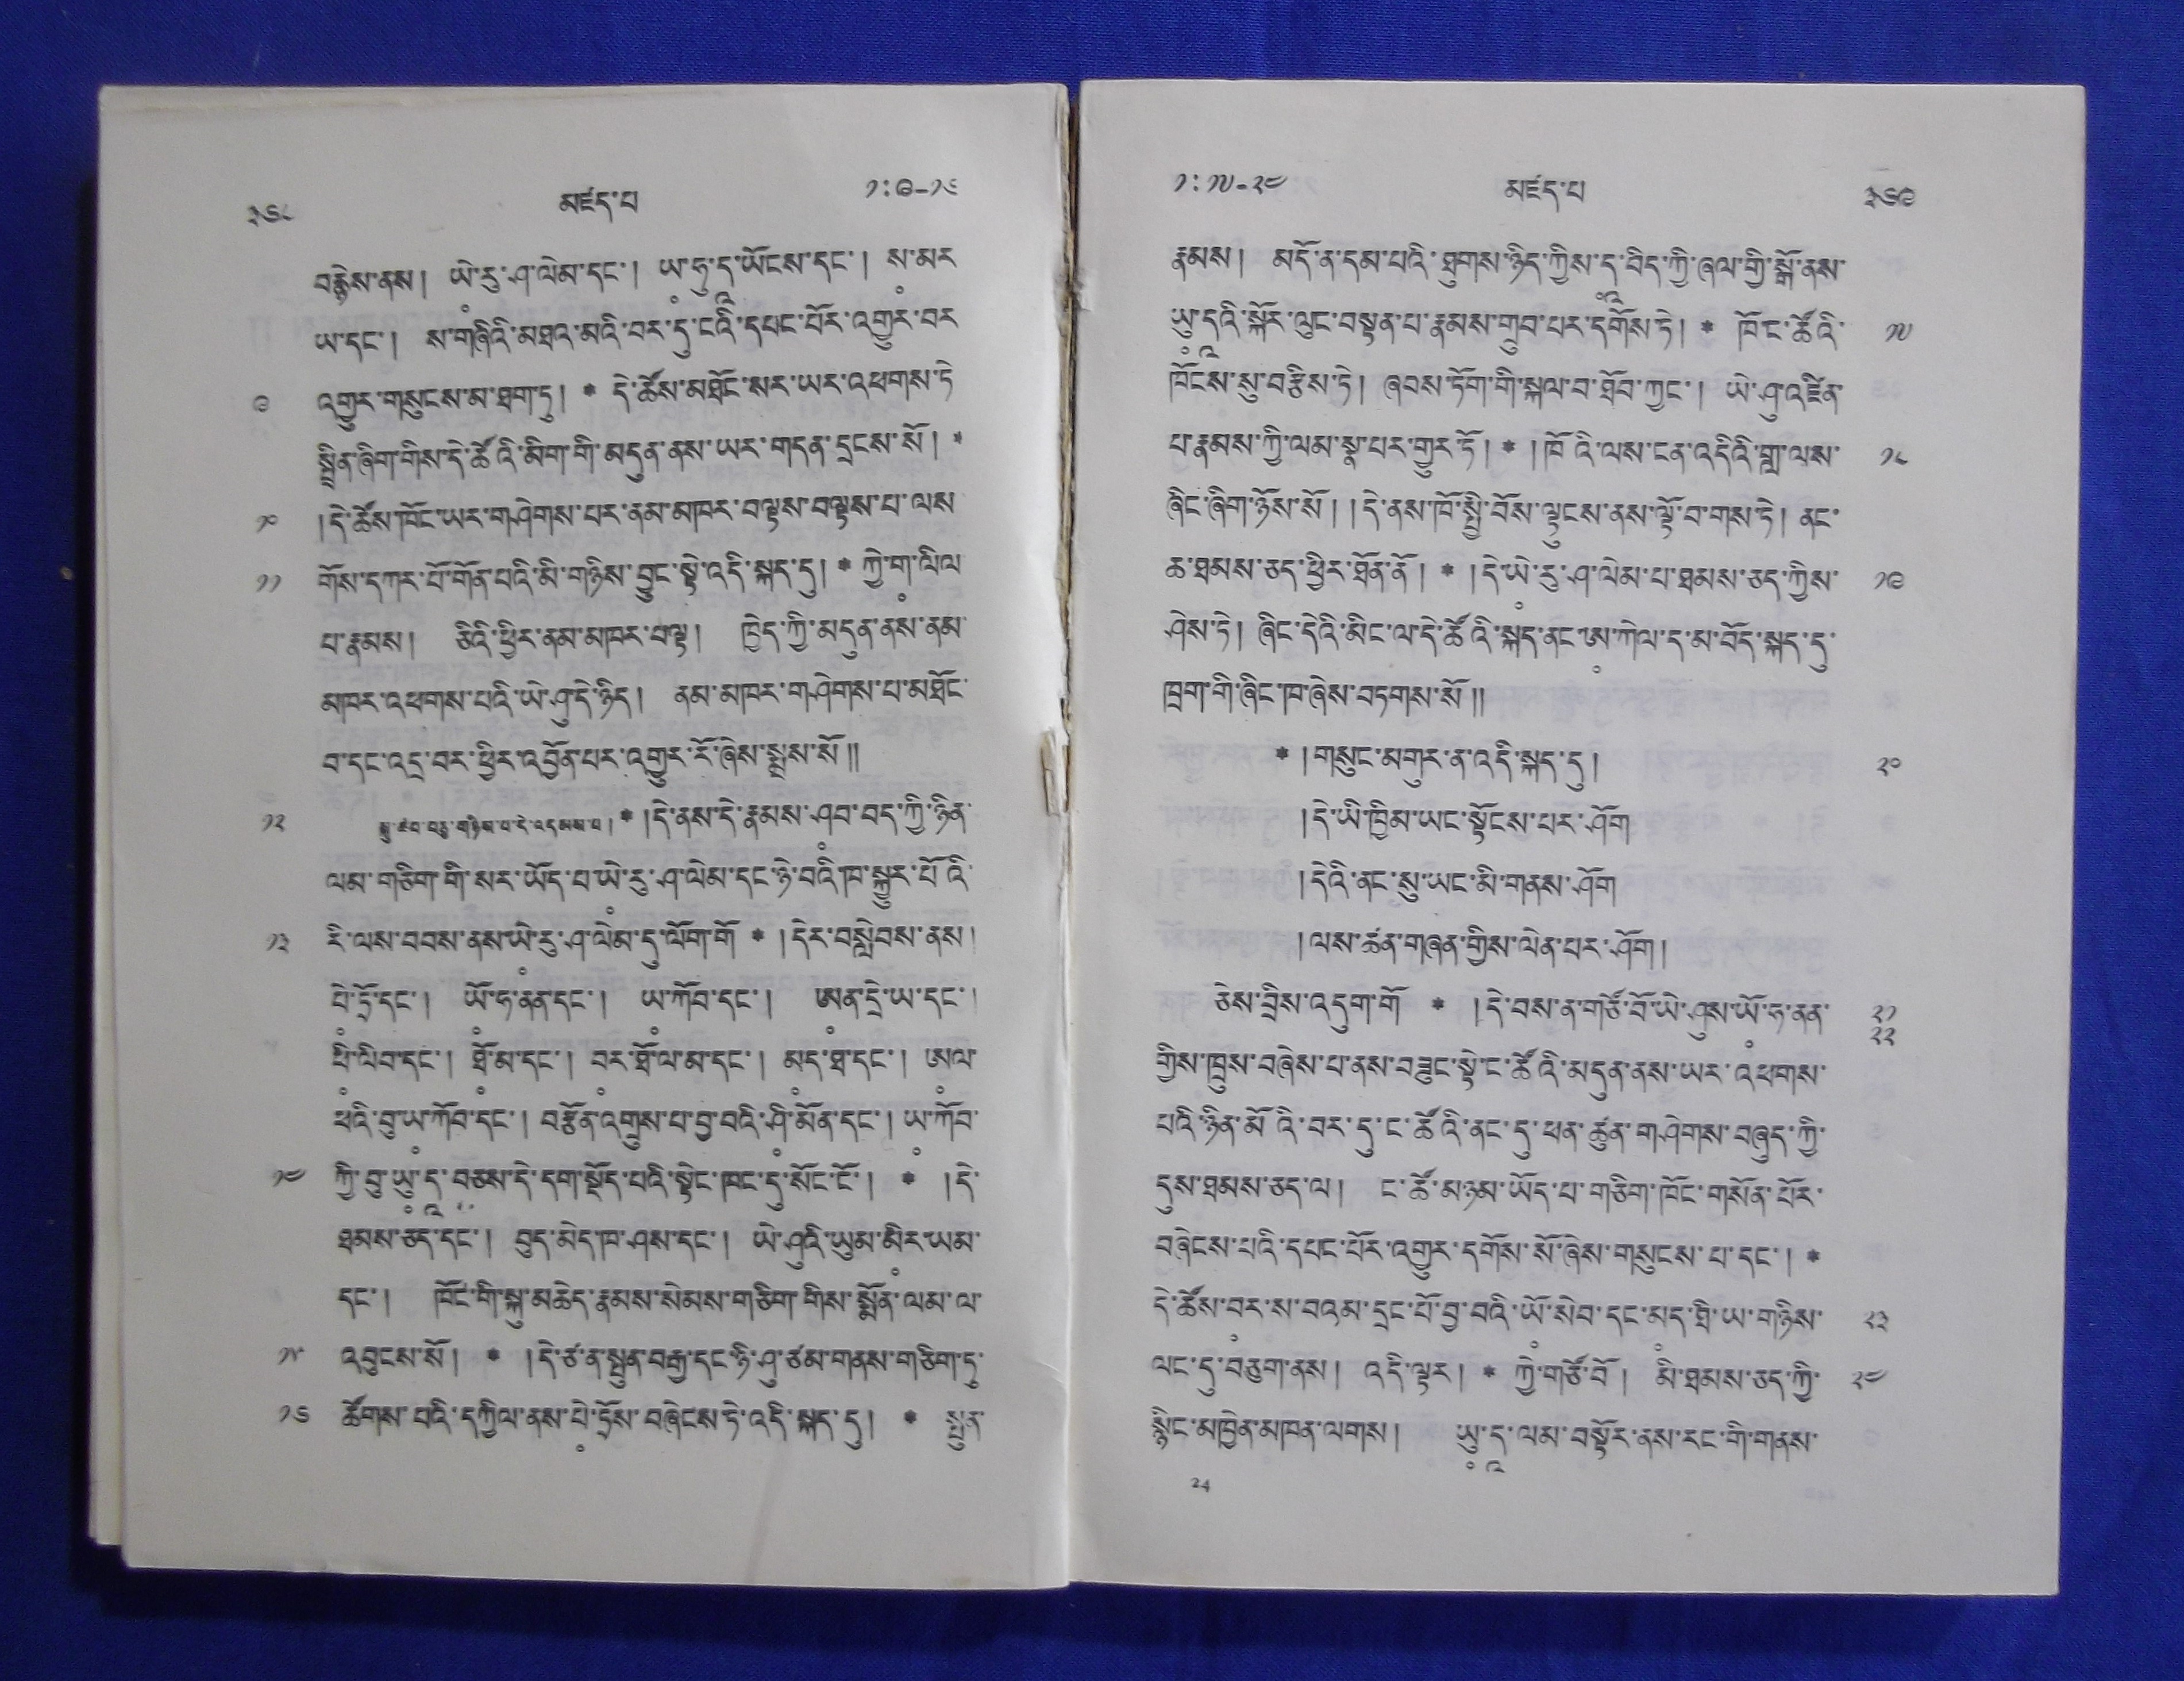 ༣༦༨ མཛད་པ ༡:༩-༡༦
བརྙེས་ནས། ཡེ་རུ་ཤ་ལེམ་དང་། ཡ་ཧུ་ད་ཡོངས་དང་། ས་མར
ཡ་དང་། ས་གཞིའི་མཐའ་མའི་བར་དུ་ངའི་དཔང་པོར་འགྱུར་བར
༩ འགྱུར་གསུངས་མ་ཐག་ཏུ། * དེ་ཚོས་མཐོང་སར་ཡར་འཕགས་ཏེ
སྤྲིན་ཞིག་གིས་དེ་ཚོའི་མིག་གི་མདུན་ནས་ཡར་གདན་དྲངས་སོ། *
༡༠ །དེ་ཚོས་ཁོང་ཡར་གཤེགས་པར་ནམ་མཁར་བལྟས་བལྟས་པ་ལས
༡༡ གོས་དཀར་པོ་གོན་པའི་མི་གཉིས་བྱུང་སྟེ་འདི་སྐད་དུ། * ཀྱེ་ག་ལིལ
པ་རྣམས། ཅིའི་ཕྱིར་ནམ་མཁར་བལྟ། ཁྱེད་ཀྱི་མདུན་ནས་ནམ་
མཁར་འཕགས་པའི་ཡེ་ཤུ་དེ་ཉིད། ནམ་མཁར་གཤེགས་པ་མཐོང་
བ་དང་འདྲ་བར་ཕྱིར་འབྱོན་པར་འགྱུར་རོ་ཞེས་སྨྲས་སོ༎
༡༢ སྐུ་ཚབ་བཅུ་གཉིས་པ་དེ་འདམས་པ། * །དེ་ནས་དེ་རྣམས་ཤབ་བད་ཀྱི་ཉིན་
ལམ་གཅིག་གི་སར་ཡོད་པ་ཡེ་རུ་ཤ་ལེམ་དང་ཉེ་བའི་ཁ་སྐྱུར་པོའི་
༡༣ རི་ལས་བབས་ནས་ཡེ་རུ་ཤ་ལེམ་དུ་ལོག་གོ * །དེར་བསླེབས་ནས།
པེ་ཏྲོ་དང་། ཡོ་ཧ་ནན་དང་། ཡ་ཀོབ་དང་། ཨན་དྲེ་ཡ་དང་།
ཕི་ལིབ་དང་། ཐོ་མ་དང་། བར་ཐོ་ལ་མ་དང་། མད་ཐ་དང་། ཨལ་
ཕའི་བུ་ཡ་ཀོབ་དང་། བརྩོན་འགྲུས་པ་བྱ་བའི་ཤི་མོན་དང་། ཡ་ཀོབ་
༡༤ ཀྱི་བུ་ཡུ་ད་བཅས་དེ་དག་སྡོད་པའི་སྟེང་ཁང་དུ་སོང་ངོ་། * །དེ་
ཐམས་ཅད་དང་། བུད་མེད་ཁ་ཤས་དང་། ཡེ་ཤུའི་ཡུམ་མིར་ཡམ་
དང་། ཁོང་གི་སྐུ་མཆེད་རྣམས་སེམས་གཅིག་གིས་སྨོན་ལམ་ལ་
༡༥ འབུངས་སོ། * །དེ་ཙ་ན་སྤུན་བརྒྱ་དང་ཉི་ཤུ་ཙམ་གནས་གཅིག་ཏུ་
༡༦ ཚོགས་པའི་དཀྱིལ་ནས་པེ་ཏྲོས་བཞེངས་ཏེ་འདི་སྐད་དུ། * སྤུན་
༡:༡༧-༢༤ མཛད་པ ༣༦༩
རྣམས། མདོ་ན་དམ་པའི་ཐུགས་ཉིད་ཀྱིས་དཱ་བིད་ཀྱི་ཞལ་གྱི་སྒོ་ནས་
ཡུ་དཱའི་སྐོར་ལུང་བསྟན་པ་རྣམས་གྲུབ་པར་དགོས་ཏེ། * ཁོ་ང་ཚོའི་ ༡༧
ཁོངས་སུ་བརྩིས་ཏེ། ཞབས་ཏོག་གི་སྐལ་བ་ཐོབ་ཀྱང་། ཡེ་ཤུ་འཛིན་
པ་རྣམས་ཀྱི་ལམ་སྣ་པར་གྱུར་ཏོ། * །ཁོའི་ལས་ངན་འདིའི་གླ་ལས་ ༡༨
ཞིང་ཞིག་ཉོས་སོ། །དེ་ནས་ཁོ་སྤྱི་བོས་ལྟུངས་ནས་ལྟོ་བ་གས་ཏེ། ནང་
ཆ་ཐམས་ཅད་ཕྱིར་ཐོན་ནོ། * །དེ་ཡེ་རུ་ཤ་ལེམ་པ་ཐམས་ཅད་ཀྱིས་ ༡༩
ཤེས་ཏེ། ཞིང་དེའི་མིང་ལ་དེ་ཚོའི་སྐད་ནང་ཨ་ཀེལ་ད་མ་བོད་སྐད་དུ་
ཁྲག་གི་ཞིང་ཁ་ཞེས་བཏགས་སོ༎
* །གསུང་མགུར་ན་འདི་སྐད་དུ། ༢༠
།དེ་ཡི་ཁྱིམ་ཡང་སྟོངས་པར་ཤོག
།དེའི་ནང་སུ་ཡང་མི་གནས་ཤོག
།ལས་ཚན་གཞན་གྱིས་ལེན་པར་ཤོག།
ཅེས་བྲིས་འདུག་གོ * །དེ་བས་ན་གཙོ་བོ་ཡེ་ཤུས་ཡོ་ཧ་ནན་ ༢༡ ༢༢
གྱིས་ཁྲུས་བཞེས་པ་ནས་བཟུང་སྟེ་ང་ཚོའི་མདུན་ནས་ཡར་འཕགས་
པའི་ཉིན་མོའི་བར་དུ་ང་ཚོའི་ནང་དུ་ཕན་ཚུན་གཤེགས་བཞུད་ཀྱི་
དུས་ཐམས་ཅད་ལ། ང་ཚོ་མཉམ་ཡོད་པ་གཅིག་ཁོང་གསོན་པོར་
བཞེངས་པའི་དཔང་པོར་འགྱུར་དགོས་སོ་ཞེས་གསུངས་པ་དང་། *
དེ་ཚོས་བར་ས་བའམ་དྲང་པོ་བྱ་བའི་ཡོ་སེབ་དང་མད་ཐི་ཡ་གཉིས་ ༢༣
ལང་དུ་བཅུག་ནས། འདི་ལྟར། * ཀྱེ་གཙོ་བོ། མི་ཐམས་ཅད་ཀྱི་ ༢༤
སྙིང་མཁྱེན་མཁན་ལགས། ཡུ་དཱ་ལམ་བསྟོར་ནས་རང་གི་གནས་
24